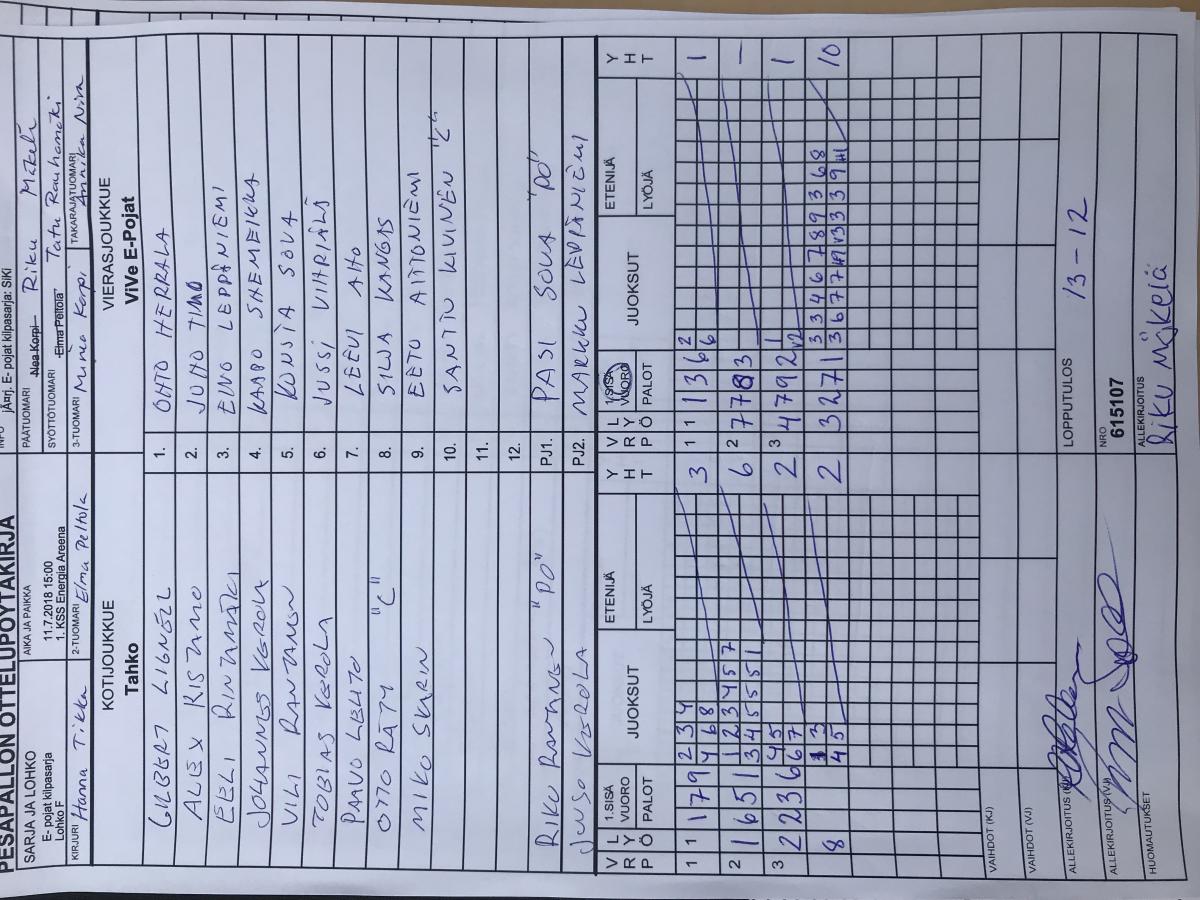 PESÄPALLON OTTELUPÖYTÄKIRJA
INFO jÄrnj. E- pojat kilpasarja: SiKi
SARJA JA LOHKO
E- pojat kilpasarja
Lohko F
AIKA JA PAIKKA
11.7.2018 15:00
1. KSS Energia Areena
PÄÄTUOMARI Nea Korpi Riku Mäkelä
SYÖTTÖTUOMARI Elma Peltola Tatu Rauhamäki
KIRJURI Hanna Tikka
2-TUOMARI Elma Peltola
3-TUOMARI Minea Korpi
TAKARAJATUOMARI Annika Niva
KOTIJOUKKUE
Tahko
VIERASJOUKKUE
ViVe E-Pojat
GILBERT LIGNELL 1. OHTO HERRALA
ALEX RISTAMO 2. JUHO TIMO
EELI RINTAMÄKI 3. EINO LEPPÄNIEMI
JOHANNES KEROLA 4. KAAPO SHEMEIKKA
VILI RANTANEN 5. KONSTA SOVA
TOBIAS KEROLA 6. JUSSI VIHRIÄLÄ
PAAVO LEHTO 7. LEEVI AHO
OTTO RÄTY "C" 8. SILJA KANGAS
MIKO SKARIN 9. EETO AITTONIEMI
10. SANTTU KIVINEN "C"
11.
12.
RIKU RANTANEN "PO" PJ1. PASI SOVA "PO"
JUSO KEROLA PJ2. MARKKU LEPPÄNIEMI
V R P L Y Ö 1.SISÄ VUORO PALOT JUOKSUT ETENIJÄ LYÖJÄ Y H T V R P L Y Ö 1/SISÄ VUORO PALOT JUOKSUT ETENIJÄ LYÖJÄ Y H T
1 1 1 7 9 2 3 4 3 1 1 1 3 6 2 1
4 6 8 6
2 1 6 5 1 1 2 3 4 5 7 6 2 7 7 8 3 –
3 4 5 5 5 1
3 2 2 3 6 4 5 2 3 4 7 9 2 1 1
6 7 V2
8 3 2 3 2 7 1 3 3 4 6 7 8 9 3 6 8 10
4 5
VAIHDOT (KJ)
VAIHDOT (VJ)
ALLEKIRJOITUS (KJ)
LOPPUTULOS 13 - 12
ALLEKIRJOITUS (VJ)
NRO
615107
HUOMAUTUKSET
ALLEKIRJOITUS
RIKU MÄKELÄ